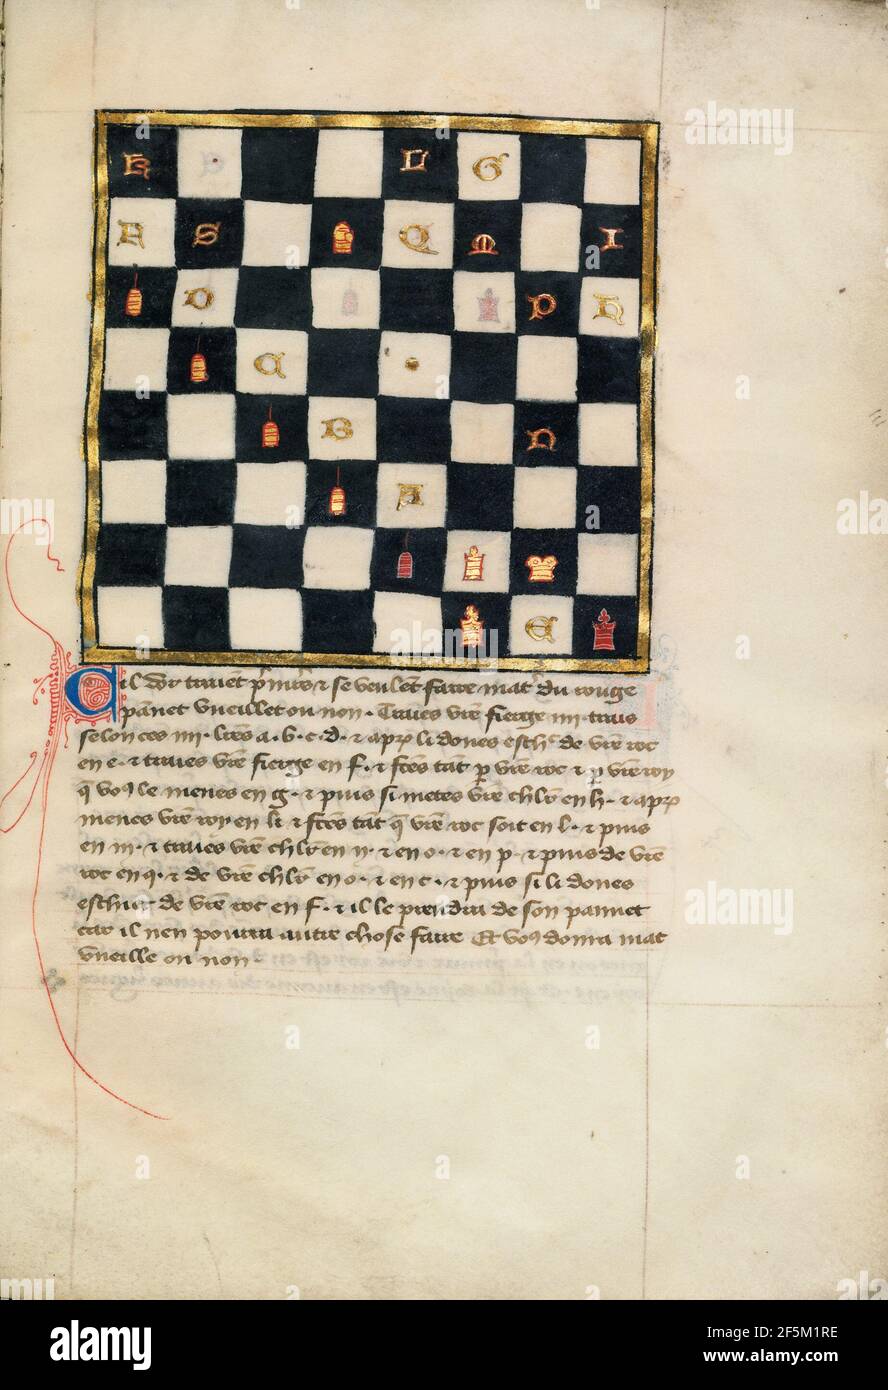 K L G
R S Q M I
D P H
C
B N
A
E
Cil dor traient et se veulent faire mat du rouge
pannet vueillet ou non. Traies vre fierge iiii. trais
selon ces iiii. lres a. b. c. d. et li dones esch de vre roc
en e. et traies vre fierge en f. et tat vre roc et vre roy
le menes en g. et puis si metes vre chlr en h. et
menes vre roy en k et tat q vre roc soit en l. et puis
en m. et traies vre chlr en n. et en o. et en p. et puis de vre
roc en q. et de vre chlr en o. et en c. et puis si li dones
eschac de vre roc en f. et il le prendra de son pannet
car il nen pourra autre chose faire Et vous donra mat
vueille ou non.
alamy
a
alamy
Image ID: 2F5M1RE
www.alamy.com